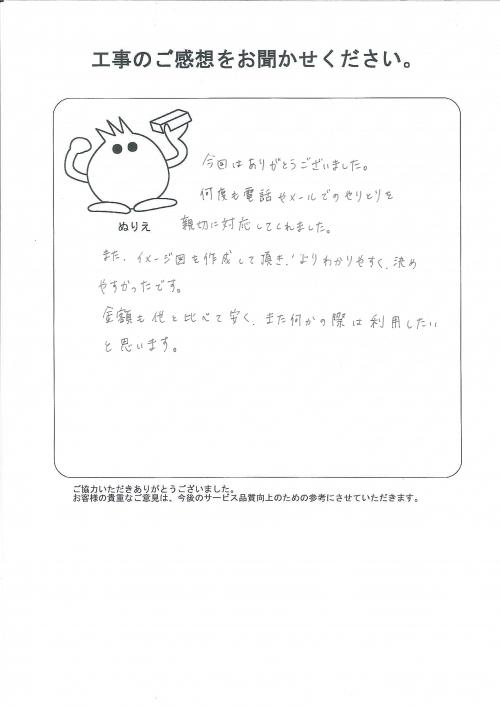 工事のご感想をお聞かせください。
今回はありがとうございました。
何度も電話やメールでのやりとりを
ぬりえ
親切に対応してくれました。
また、イメージ図も作成して頂き、よりわかりやすく、決め
やすかったです。
金額も他と比べて安く、また何かの際は利用したい
と思います。
ご協力いただきありがとうございました。
お客様の貴重なご意見は、今後のサービス品質向上のための参考にさせていただきます。